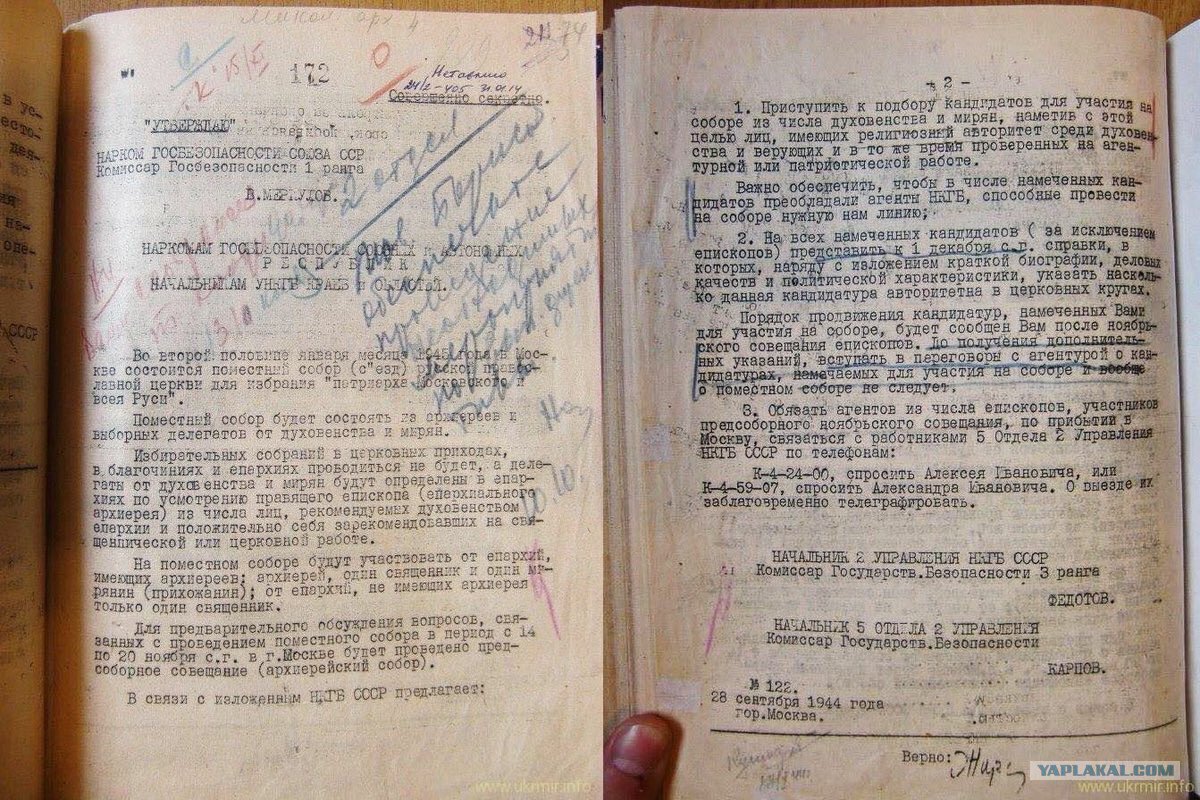 172
Совершенно секретно.
"УТВЕРЖДАЮ"
НАРКОМ ГОСБЕЗОПАСНОСТИ СОЮЗА ССР
Комиссар Госбезопасности 1 ранга
В.МЕРКУЛОВ.
НАРКОМАМ ГОСБЕЗОПАСНОСТИ СОЮЗНЫХ и АВТОНОМНЫХ
РЕСПУБЛИК
НАЧАЛЬНИКАМ УНКГБ КРАЕВ и ОБЛАСТЕЙ.
Во второй половине января месяца 1945 года в Мос-
кве состоится поместный собор (с"езд) русской право-
лавной церкви для избрания "патриарха Московского и
всея Руси".
Поместный собор будет состоять из архиереев и
выборных делегатов от духовенства и мирян.
Избирательных собраний в церковных приходах,
в благочиниях и епархиях проводиться не будет, а деле-
гаты от духовенства и мирян будут определены в епар-
хиях по усмотрению правящего епископа (епархиального
архиерея) из числа лиц, рекомендуемых духовенством
епархии и положительно себя зарекомендовавших на свя-
щеннической или церковной работе.
На поместном соборе будут участвовать от епархий,
имеющих архиереев: архиерей, один священник и один ми-
рянин (прихожанин); от епархий, не имеющих архиерея
только один священник.
Для предварительного обсуждения вопросов, свя-
занных с проведением поместного собора в период с 14
по 20 ноября с.г. в г.Москве будет проведено пред-
соборное совещание (архиерейский собор).
В связи с изложенным НКГБ СССР предлагает:
- 2 -
1. Приступить к подбору кандидатов для участия на
соборе из числа духовенства и мирян, наметив с этой
целью лиц, имеющих религиозный авторитет среди духовен-
ства и верующих и в то же время проверенных на аген-
турной или патриотической работе.
Важно обеспечить, чтобы в числе намеченных кан-
дидатов преобладали агенты НКГБ, способные провести
на соборе нужную нам линию;
2. На всех намеченных кандидатов ( за исключением
епископов) представить к 1 декабря с.г. справки, в
которых, наряду с изложением краткой биографии, деловых
качеств и политической характеристики, указать насколь-
ко данная кандидатура авторитетна в церковных кругах.
Порядок продвижения кандидатур, намеченных Вами
для участия на соборе, будет сообщен Вам после ноябрь-
ского совещания епископов. До получения дополнитель-
ных указаний, вступать в переговоры с агентурой о кан-
дидатурах, намечаемых для участия на соборе и вообще
о поместном соборе не следует.
3. Обязать агентов из числа епископов, участников
предсоборного ноябрьского совещания, по прибытии в
Москву, связаться с работниками 5 Отдела 2 Управления
НКГБ СССР по телефонам:
К-4-24-00, спросить Алексея Ивановича, или
К-4-59-07, спросить Александра Ивановича. О выезде их
заблаговременно телеграфировать.
НАЧАЛЬНИК 2 УПРАВЛЕНИЯ НКГБ СССР
Комиссар Государств.Безопасности 3 ранга
ФЕДОТОВ.
НАЧАЛЬНИК 5 ОТДЕЛА 2 УПРАВЛЕНИЯ
Комиссар Государств.Безопасности
КАРПОВ.
№ 122.
28 сентября 1944 года
гор.Москва.
Верно:
YAPLAKAL.COM
www.ukrmir.info
www.ukrmir.info